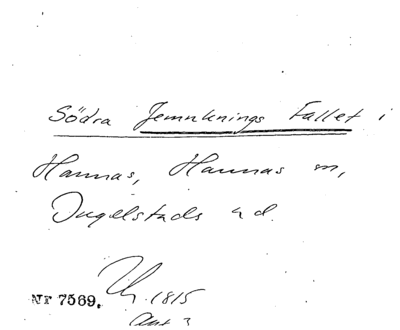 Södra Jemnknings Fallet i
Hannas, Hannas sn,
Ingelstads hd.
Nr 7569. 1815